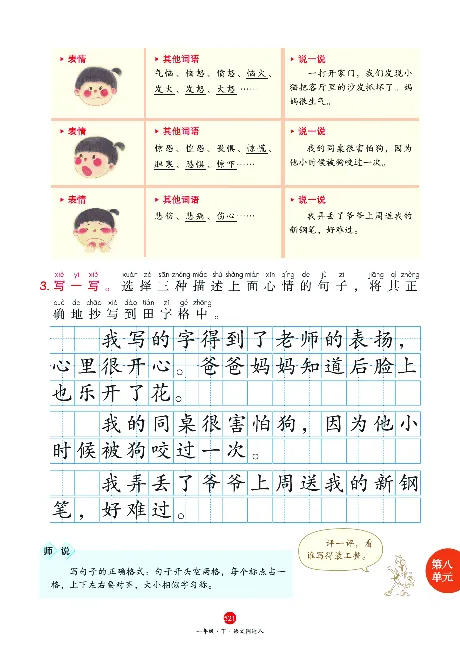 表情
其他词语
说一说
气恼、愤怒、恼火、
发火、发怒、大怒……
一打开家门，我们发现小
猫把客厅里的沙发抓坏了。妈
妈很生气。
表情
其他词语
说一说
惊恐、惶恐、畏惧、惊慌、
胆寒、恐惧、惊吓……
我的同桌很害怕狗，因为
他小时候被狗咬过一次。
表情
其他词语
说一说
悲伤、悲痛、伤心……
我弄丢了爷爷上周送我的
新钢笔，好难过。
xiě yi xiě xuǎn zé sān zhǒng miáo shù shàng miàn xīn qíng de jù zi jiāng qí zhèng
3.写一写。选择三种描述上面心情的句子，将其正
què de chāo xiě dào tián zì gé zhōng
确地抄写到田字格中。
我写的字得到了老师的表扬，
心里很开心。爸爸妈妈知道后脸上
也乐开了花。
我的同桌很害怕狗，因为他小
时候被狗咬过一次。
我弄丢了爷爷上周送我的新钢
笔，好难过。
师说
写句子的正确格式：句子开头空两格，每个标点占一
格，上下左右要对齐，大小相似字匀称。
评一评，看
谁写得最工整。
第八
单元